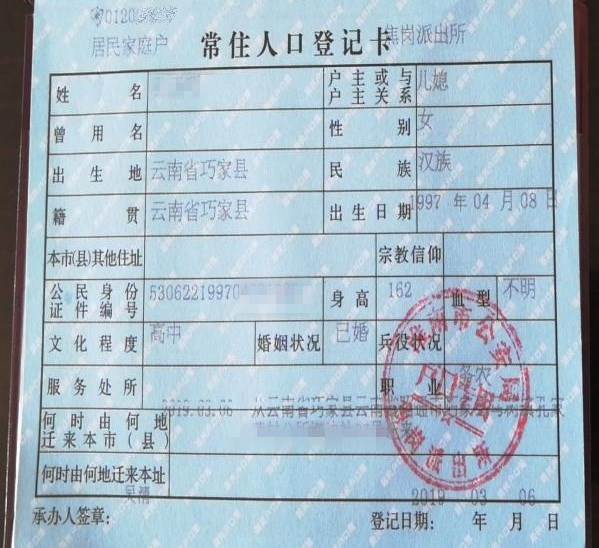 居民家庭户 常住人口登记卡 焦岗派出所
姓名 户主或与户主关系 儿媳
曾用名 性别 女
出生地 云南省巧家县 民族 汉族
籍贯 云南省巧家县 出生日期 1997 年 04 月 08 日
本市(县)其他住址 宗教信仰
公民身份证件编号 53062219970 身高 162 血型 不明
文化程度 高中 婚姻状况 已婚 兵役状况
服务处所 职业 务农
何时由何地迁来本市(县) 2019.03.06 从云南省巧家县云南省昭通市巧家县
何时由何地迁来本址
承办人签章: 吴清 登记日期: 2019 年 03 月 06 日